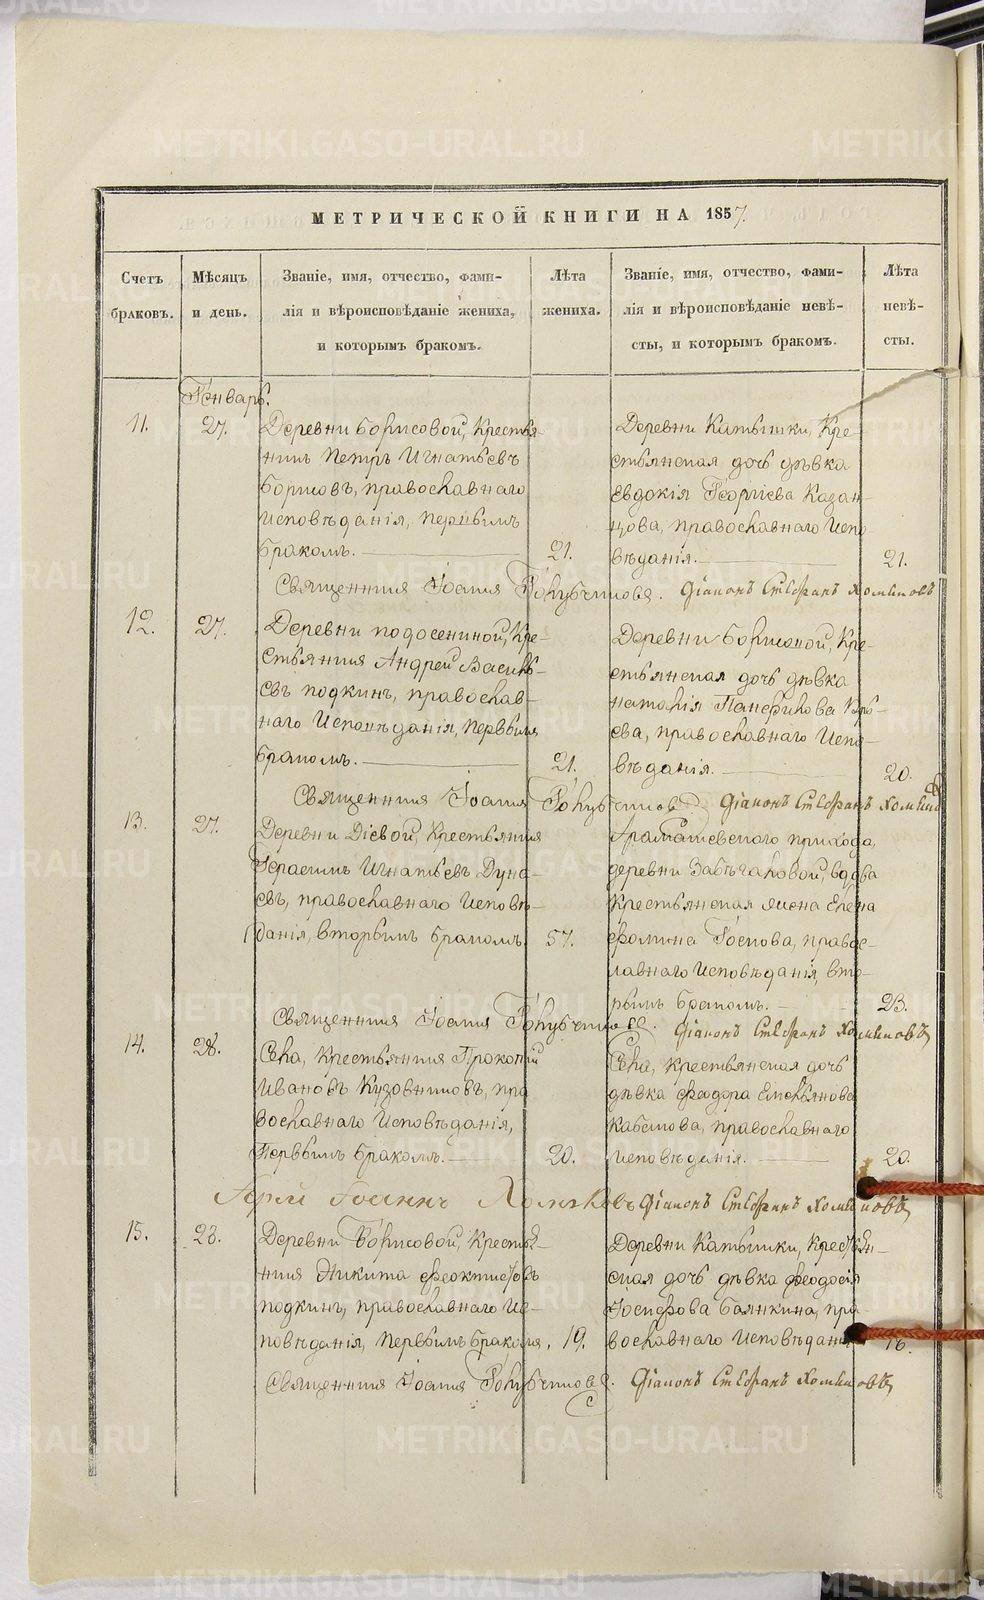 МЕТРИЧЕСКОЙ КНИГИ НА 1857.
Счетъ
браковъ.
Мѣсяцъ
и день.
Званіе, имя, отчество, фами-
лія и вѣроисповѣданіе жениха,
и которымъ бракомъ.
Лѣта
жениха.
Званіе, имя, отчество, фами-
лія и вѣроисповѣданіе невѣ-
сты, и которымъ бракомъ.
Лѣта
невѣ-
сты.
Генварь.
11.
27.
Деревни Борисовой, Крестья-
нинъ Петръ Игнатьевъ
Борисовъ, православнаго
исповѣданія, первымъ
бракомъ.
21.
Деревни Катышки, Кре-
стьянская дочь дѣвка
Евдокія Георгіева Казан-
цова, православнаго испо-
вѣданія.
21.
Священникъ Іоаннъ Голубчиковъ. Діаконъ Стефанъ Хомяковъ
12.
27.
Деревни Подосениной, Кре-
стьянинъ Андрей Василь-
евъ Подкинъ, православ-
наго Исповѣданія, первымъ
бракомъ.
21.
Деревни Борисовой, Кре-
стьянская дочь дѣвка
Наталія Панфилова
ева, православнаго Испо-
вѣданія.
20.
Священникъ Іоаннъ Голубчиковъ Діаконъ Стефанъ Хомяковъ
13.
27.
Деревни Діевой, Крестьянинъ
Герасимъ Игнатьевъ Дуна-
евъ, православнаго Исповѣ-
данія, вторымъ бракомъ.
57.
Арамашевскаго прихода,
деревни Забѣгаловой, вдова
Крестьянская жена Елена
Фомина Госкова, правос-
лавнаго Исповѣданія, вто-
рымъ бракомъ.
23.
Священникъ Іоаннъ Голубчиковъ. Діаконъ Стефанъ Хомяковъ
14.
28.
Села, Крестьянинъ Прокопій
Ивановъ Кузовниковъ, пра
вославнаго Исповѣданія,
Первымъ бракомъ.
20.
Села, крестьянская дочь
дѣвка Феодора Емельянова
Кабакова, православнаго
Исповѣданія.
20.
Іерей Іоаннъ Хомяковъ Діаконъ Стефанъ Хомяковъ
15.
28.
Деревни Борисовой, Крестья-
нинъ Никита Феоктистовъ
Подкинъ, православнаго Ис-
повѣданія, Первымъ бракомъ.
19.
Деревни Катышки, Крестьян-
ская дочь дѣвка Феодосія
Іосифова Баянкина, пра-
вославнаго Исповѣданія
16.
Священникъ Іоаннъ Голубчиковъ. Діаконъ Стефанъ Хомяковъ
METRIKI.GASO-URAL.RU